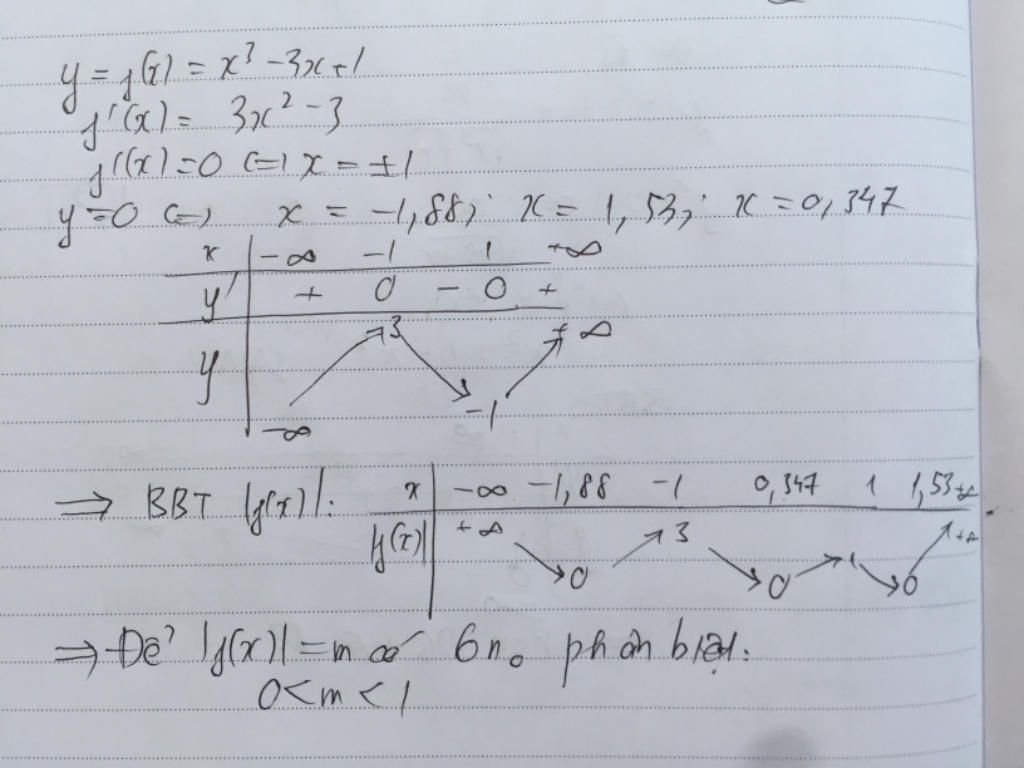 y = f(x) = x³ - 3x + 1
f'(x) = 3x² - 3
f'(x) = 0 <=> x = ±1
y = 0 <=> x = -1,88; x = 1,53; x = 0,347
x -∞ -1 1 +∞
y' + 0 - 0 +
3 +∞
y
-1
-∞
=> BBT |f(x)|: x -∞ -1,88 -1 0,347 1 1,53 +∞
|f(x)| +∞ 0 3 0 1 0 +∞
=> Để |f(x)| = m có 6 no phân biệt:
0 < m < 1